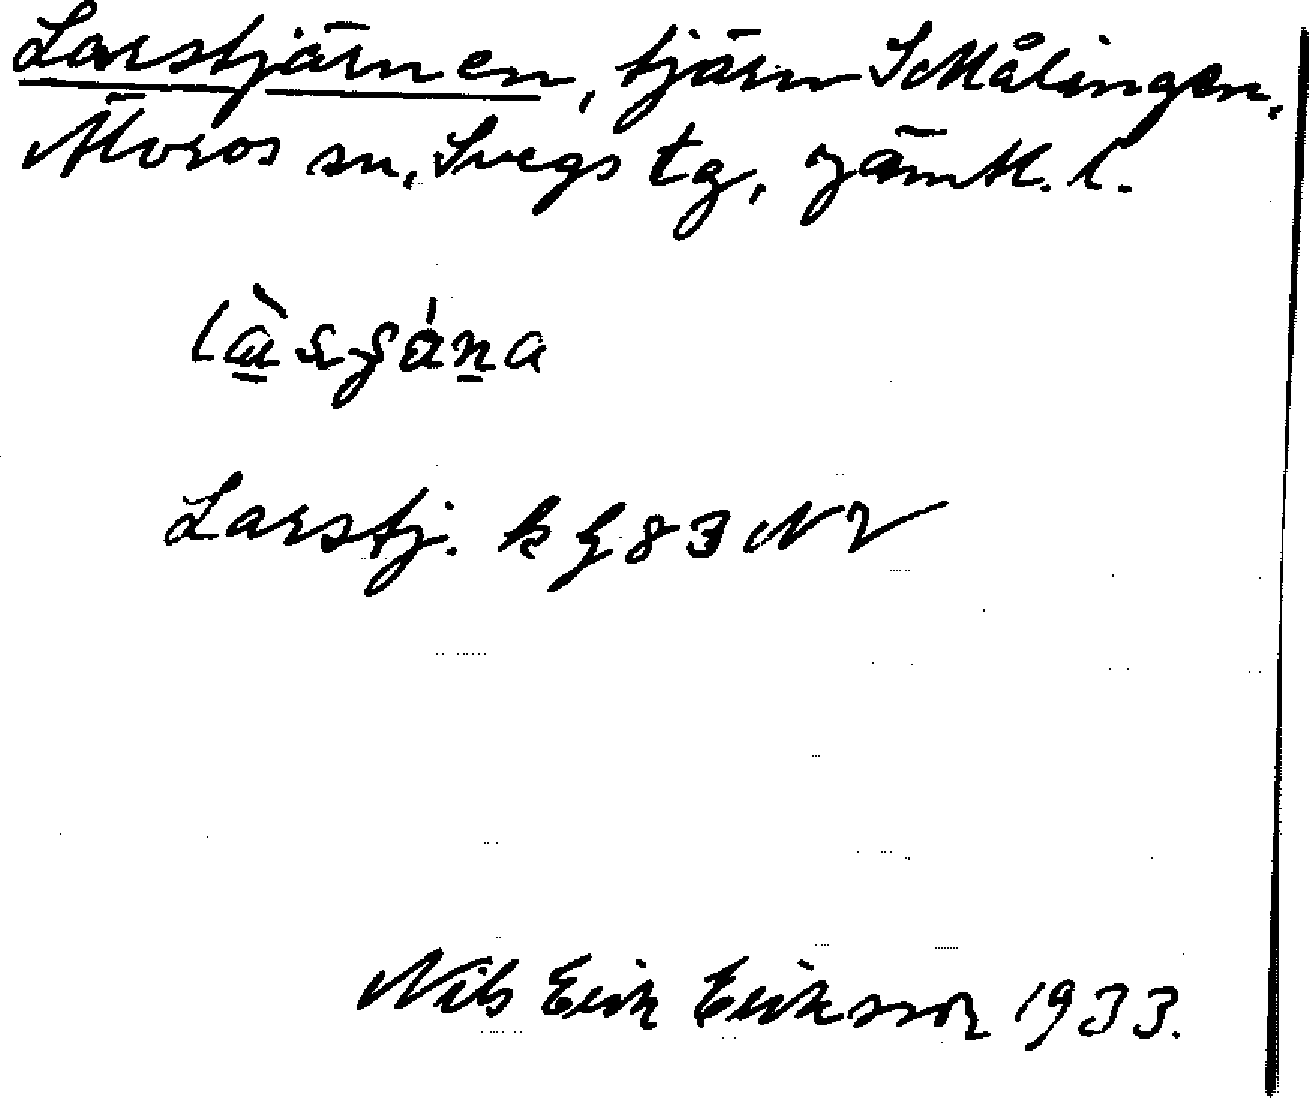 Larstjärnen, tjärn S Målingen,
Älvros sn, Svegs tg, Jämtl. l.
Larstj. k G 83 NV
Nils Erik Eriksson 1933.